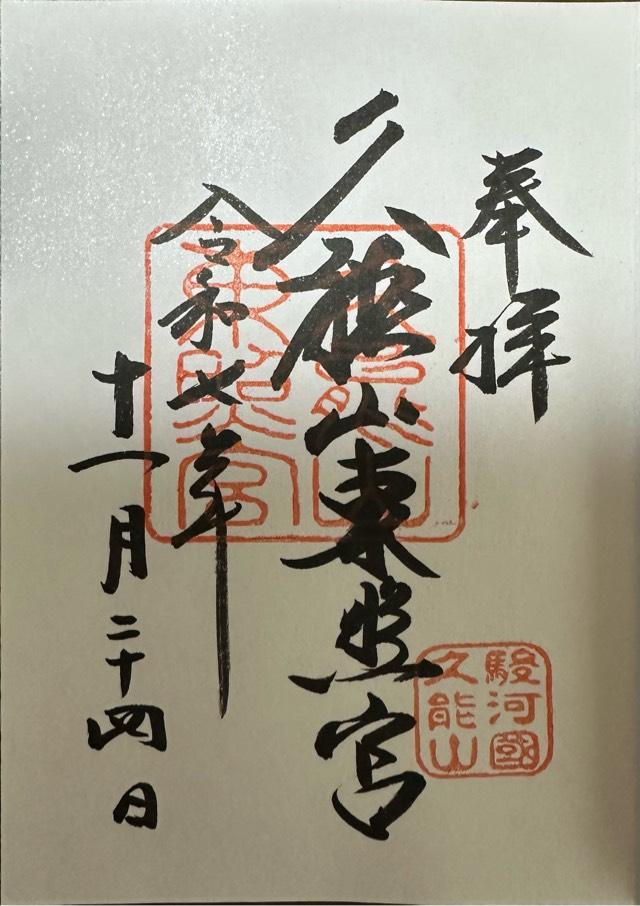 奉拝
久能山東照宮
令和七年
十一月二十四日
久能山
東照宮
駿河國
久能山